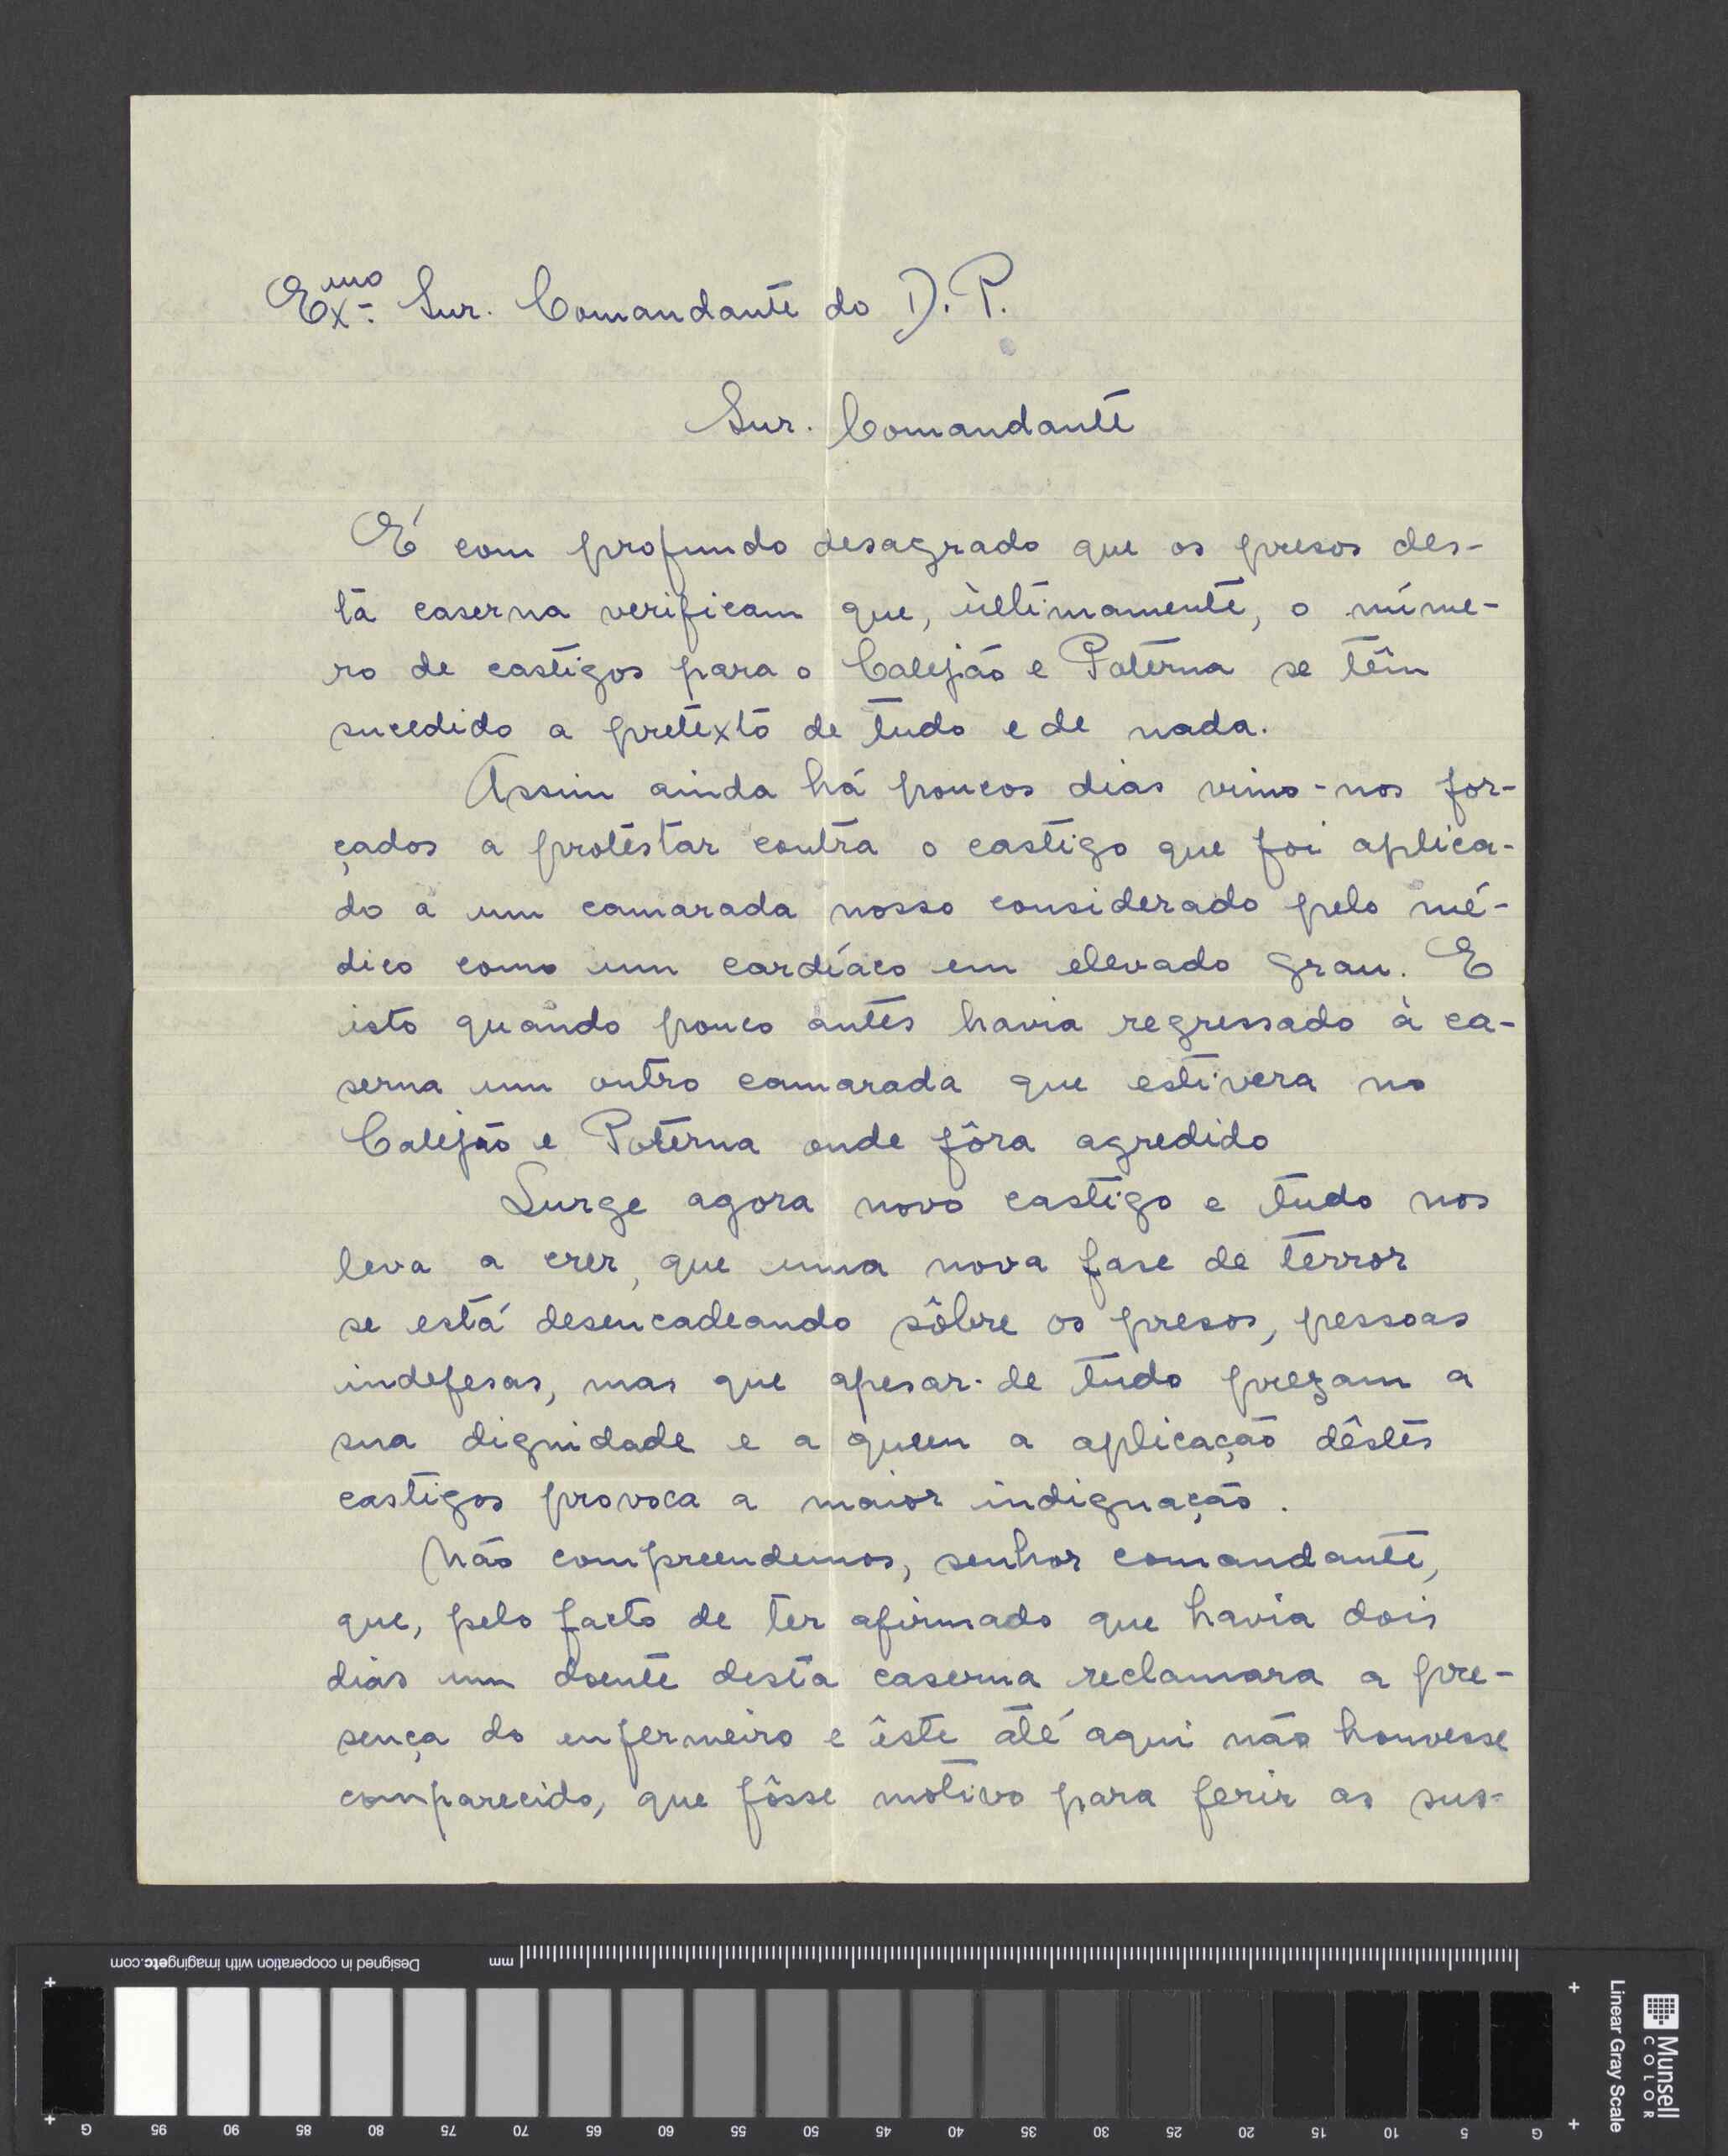 Exmo. Snr. Comandante do D. P.
Snr. Comandante
É com profundo desagrado que os presos des-
ta caserna verificam que, ùltimamente, o núme-
ro de castigos para o Calejão e Poterna se têm
sucedido a pretexto de tudo e de nada.
Assim ainda há poucos dias vimo-nos for-
çados a protestar contra o castigo que foi aplica-
do a um camarada nosso considerado pelo mé-
dico como um cardíaco em elevado grau. E
isto quando pouco antes havia regressado à ca-
serna um outro camarada que estivera no
Calejão e Poterna onde fôra agredido
Surge agora novo castigo e tudo nos
leva a crer, que uma nova fase de terror
se está desencadeando sôbre os presos, pessoas
indefesas, mas que apesar-de tudo prezam a
sua dignidade e a quem a aplicação dêstes
castigos provoca a maior indignação.
Não compreendemos, senhor comandante,
que, pelo facto de ter afirmado que havia dois
dias um doente desta caserna reclamara a pre-
sença do enfermeiro e êste até aqui não houvesse
comparecido, que fôsse motivo para ferir as sus-
Designed in cooperation with imagingetc.com
mm
G 95 90 85 80 75 70 65 60 55 50 45 40 35 30 25 20 15 10 5 G
Linear Gray Scale
Munsell
COLOR